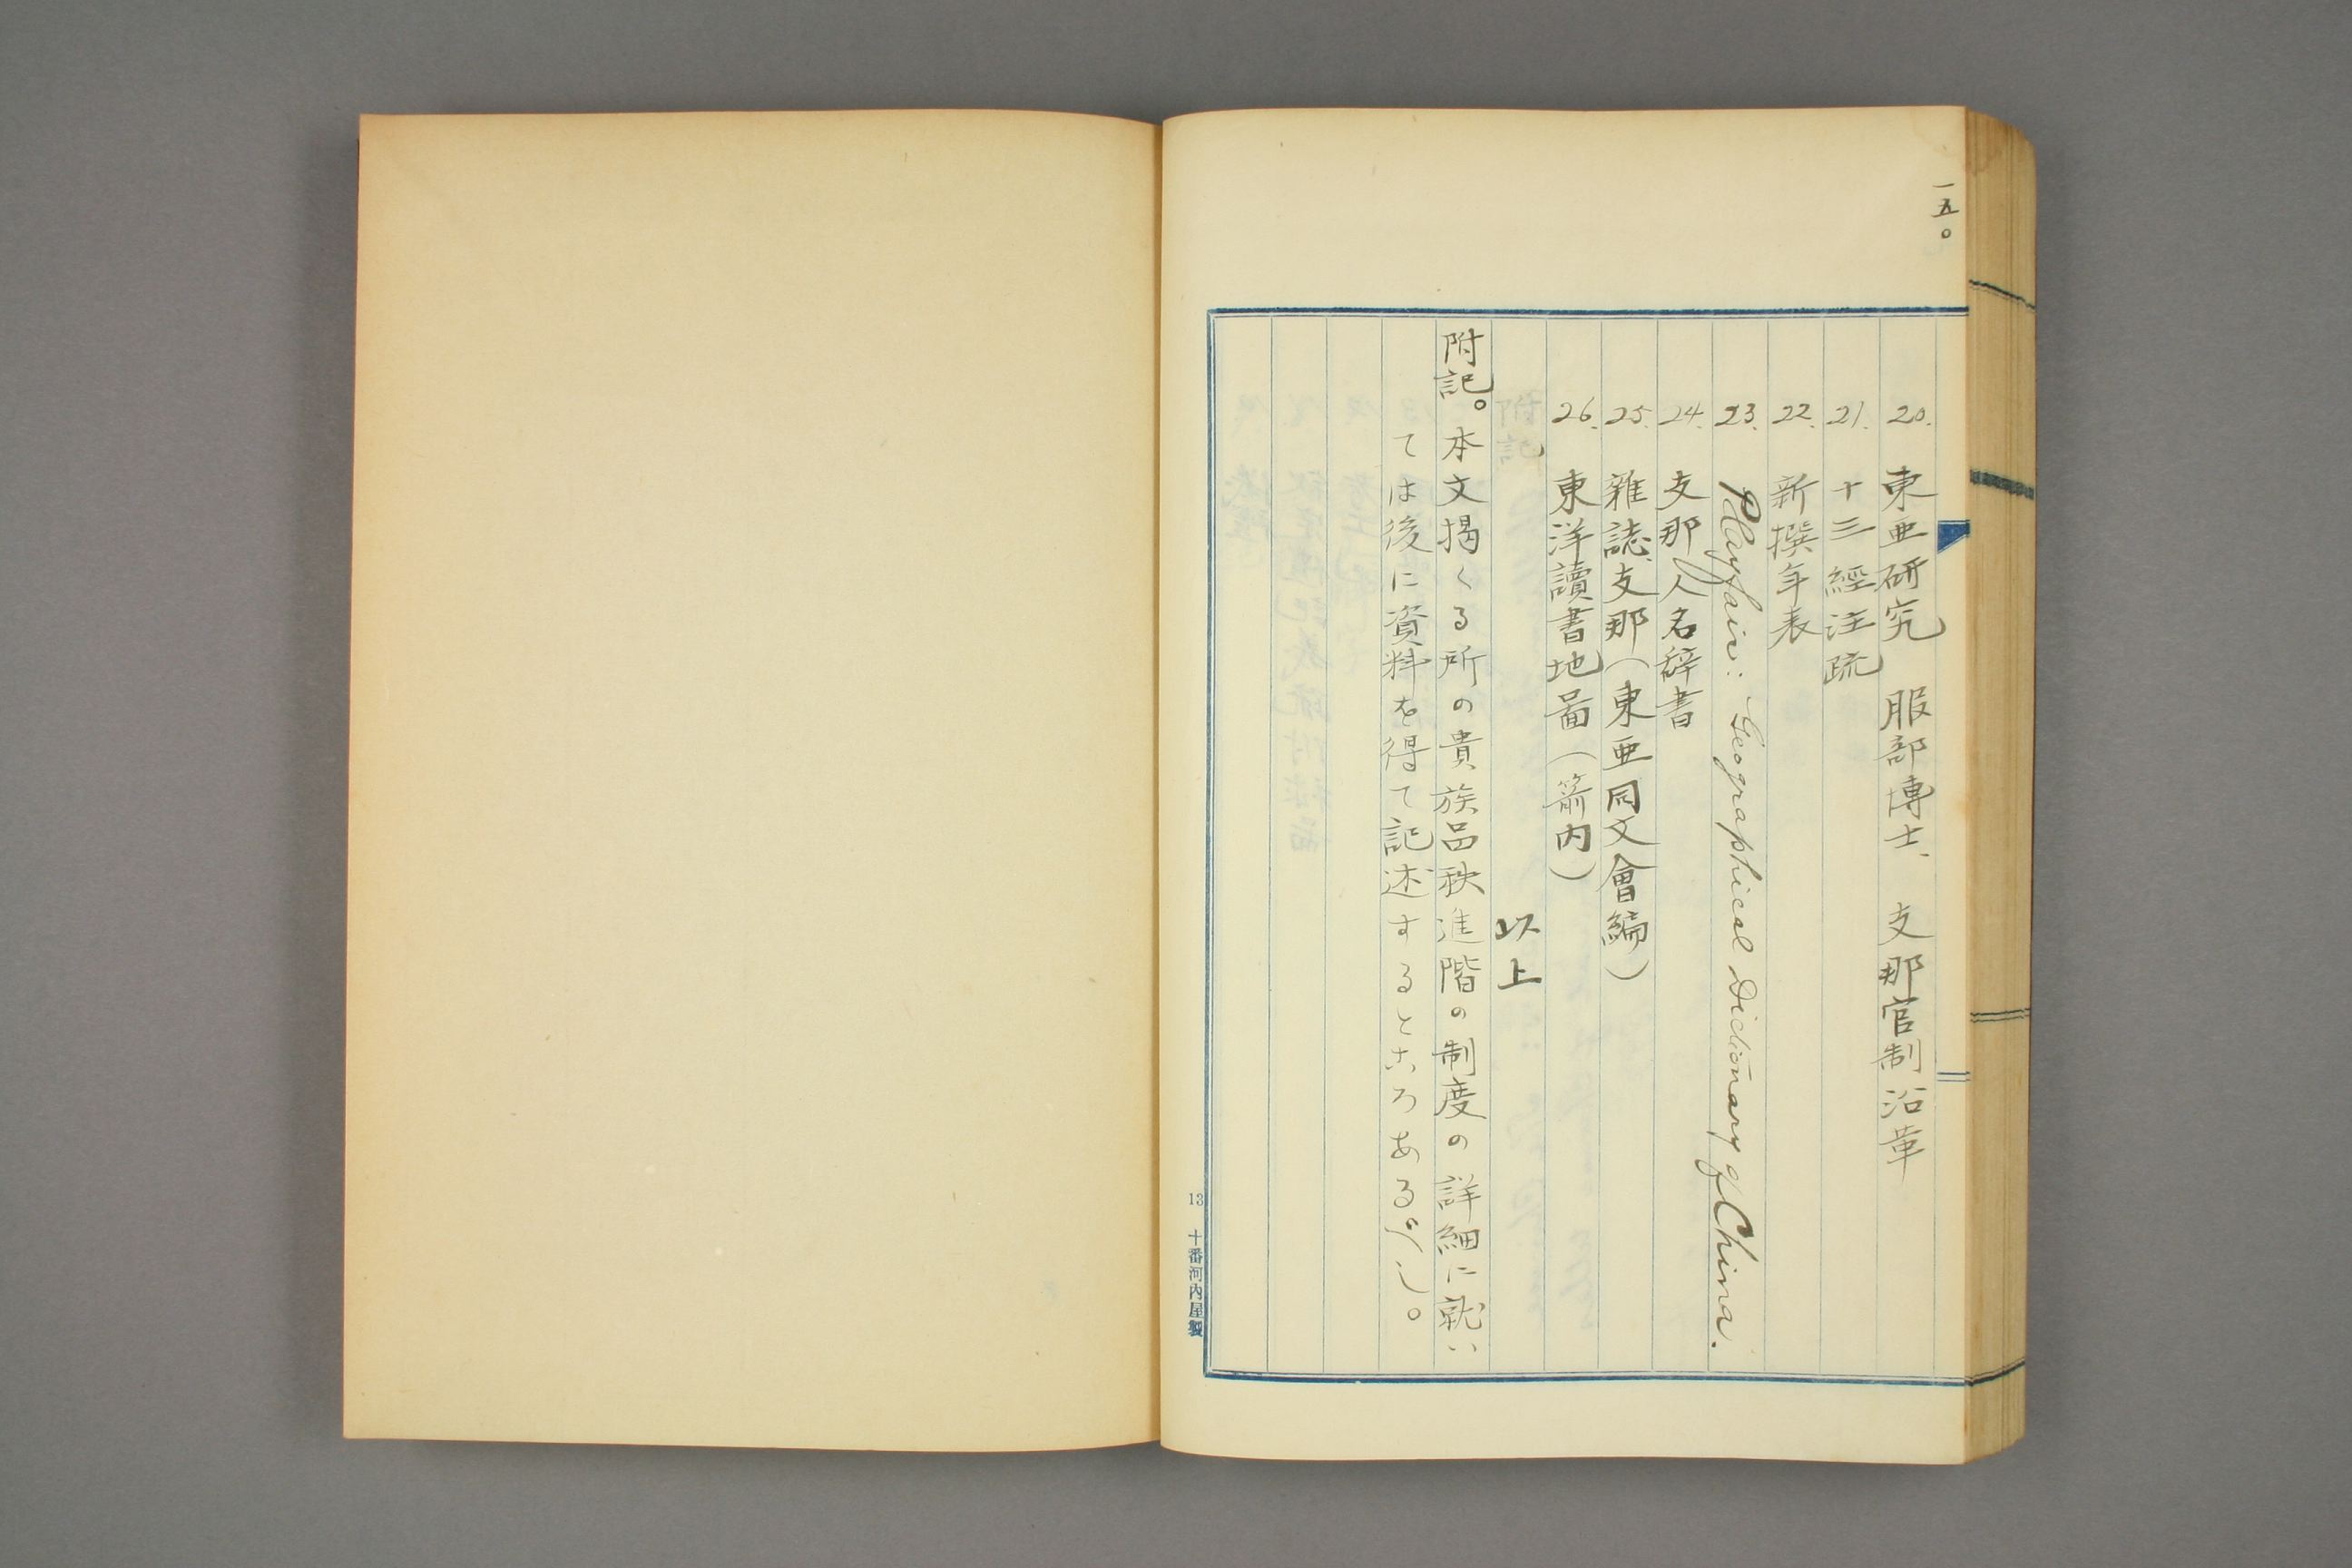 一五〇
20. 東亜研究 服部博士、支那官制沿革
21. 十三經注疏
22. 新撰年表
23. Playfair: Geographical Dictionary of China.
24. 支那人名辞書
25. 雜誌、支那（東亜同文會編）
26. 東洋讀書地畐（箭内）
以上
附記。本文揭くる所の貴族品秩進階の制度の詳細に就い
ては後に資料を得て記述するところあるべし。
13 十番河内屋製